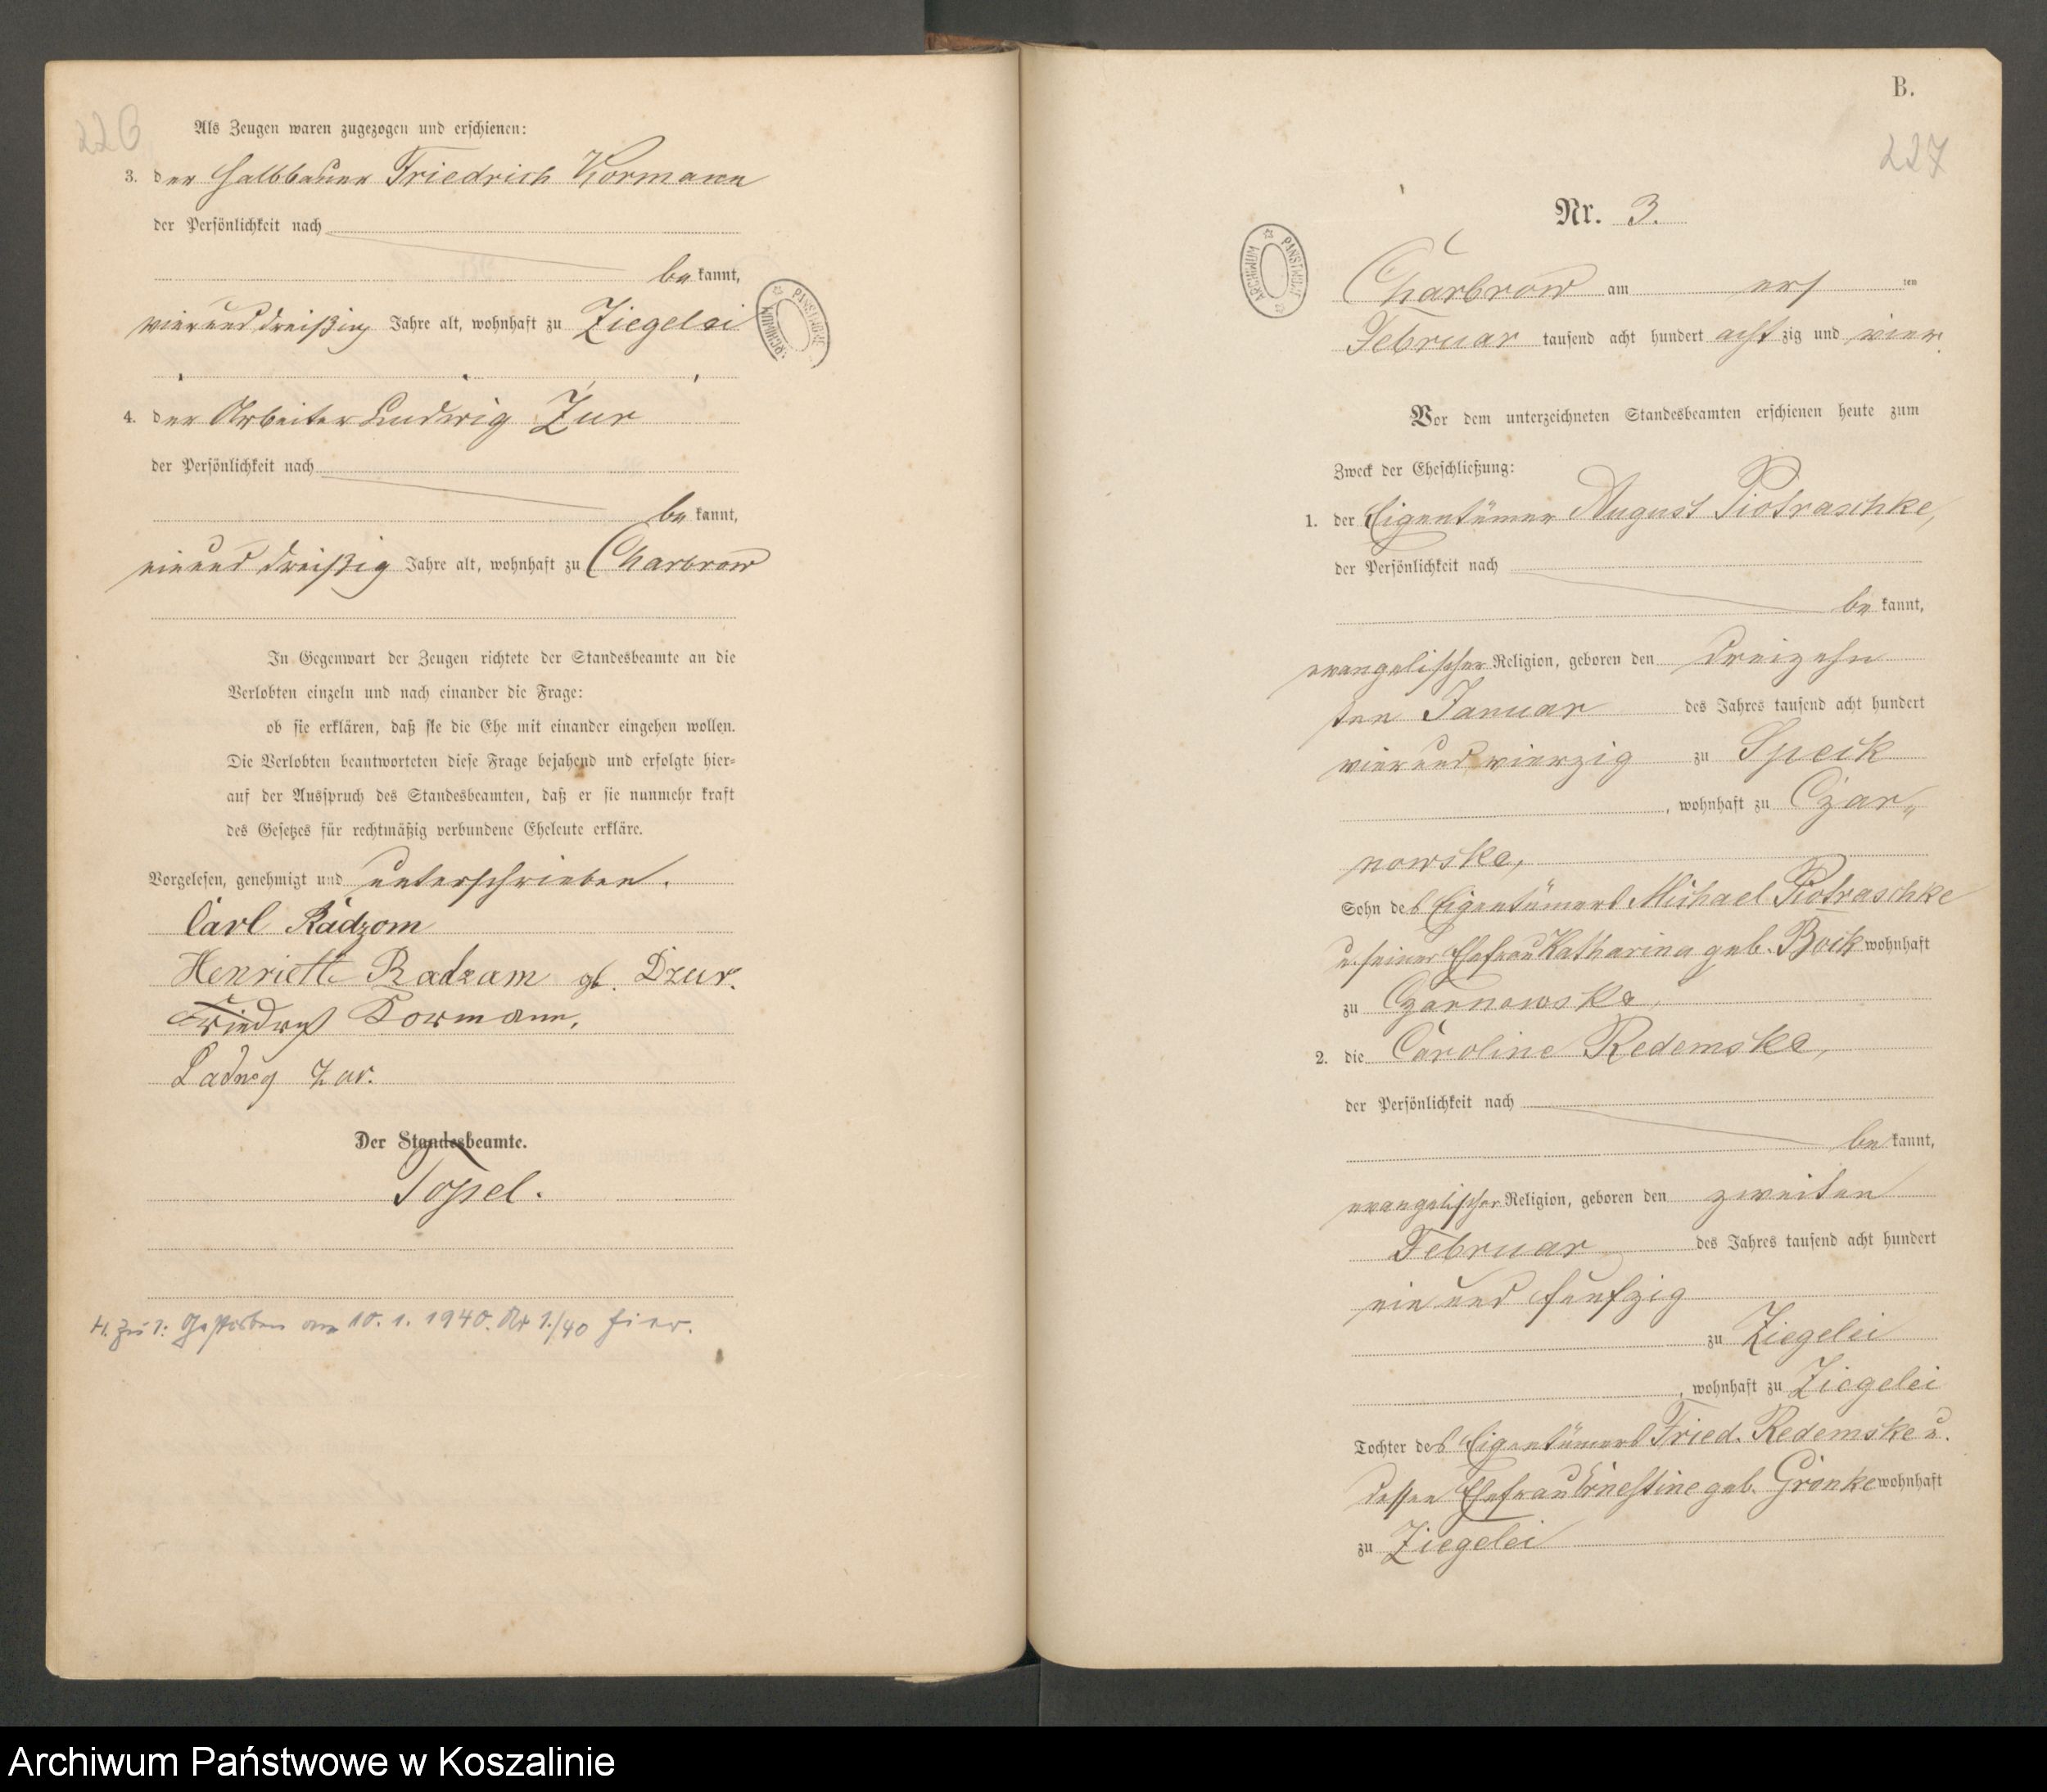 226
Als Zeugen waren zugezogen und erschienen:
3. der Halbbauer Friedrich Kormann
der Persönlichkeit nach
be kannt,
vierunddreißig Jahre alt, wohnhaft zu Ziegelei
4. der Arbeiter Ludwig Zur
der Persönlichkeit nach
be kannt,
einund dreißig Jahre alt, wohnhaft zu Charbrow
In Gegenwart der Zeugen richtete der Standesbeamte an die
Verlobten einzeln und nach einander die Frage:
ob sie erklären, daß sie die Ehe mit einander eingehen wollen.
Die Verlobten beantworteten diese Frage bejahend und erfolgte hier=
auf der Ausspruch des Standesbeamten, daß er sie nunmehr kraft
des Gesetzes für rechtmäßig verbundene Eheleute erkläre.
Vorgelesen, genehmigt und unterschrieben.
Carl Radzom
Henriette Radzam gb. Dzur.
Friedrich Kormann.
Ludwig Zur.
Der Standesbeamte.
Topel.
H. zu 1: Gestorben am 10. 1. 1940. Nr 1./40 hier.
ARCHIWUM PAŃSTWOWE
B.
227
Nr. 3.
ARCHIWUM PAŃSTWOWE
Charbrow am ers ten
Februar tausend acht hundert acht zig und vier
Vor dem unterzeichneten Standesbeamten erschienen heute zum
Zweck der Eheschließung:
1. der Eigentümer August Piotraschke,
der Persönlichkeit nach
be kannt,
evangelischer Religion, geboren den dreizehn
ten Januar des Jahres tausend acht hundert
vierund vierzig zu Speck
, wohnhaft zu Czar„
nowske,
Sohn des Eigentümers Michael Piotraschke
u. seiner Ehefrau Katharina geb. Bock wohnhaft
zu Czarnowske,
2. die Caroline Redemske,
der Persönlichkeit nach
be kannt,
evangelischer Religion, geboren den zweiten
Februar des Jahres tausend acht hundert
ein und funfzig
zu Ziegelei
, wohnhaft zu Ziegelei
Tochter des Eigentümers Fried. Redemske u.
dessen Ehefrau Ernestine geb. Gronke wohnhaft
zu Ziegelei
Archiwum Państwowe w Koszalinie